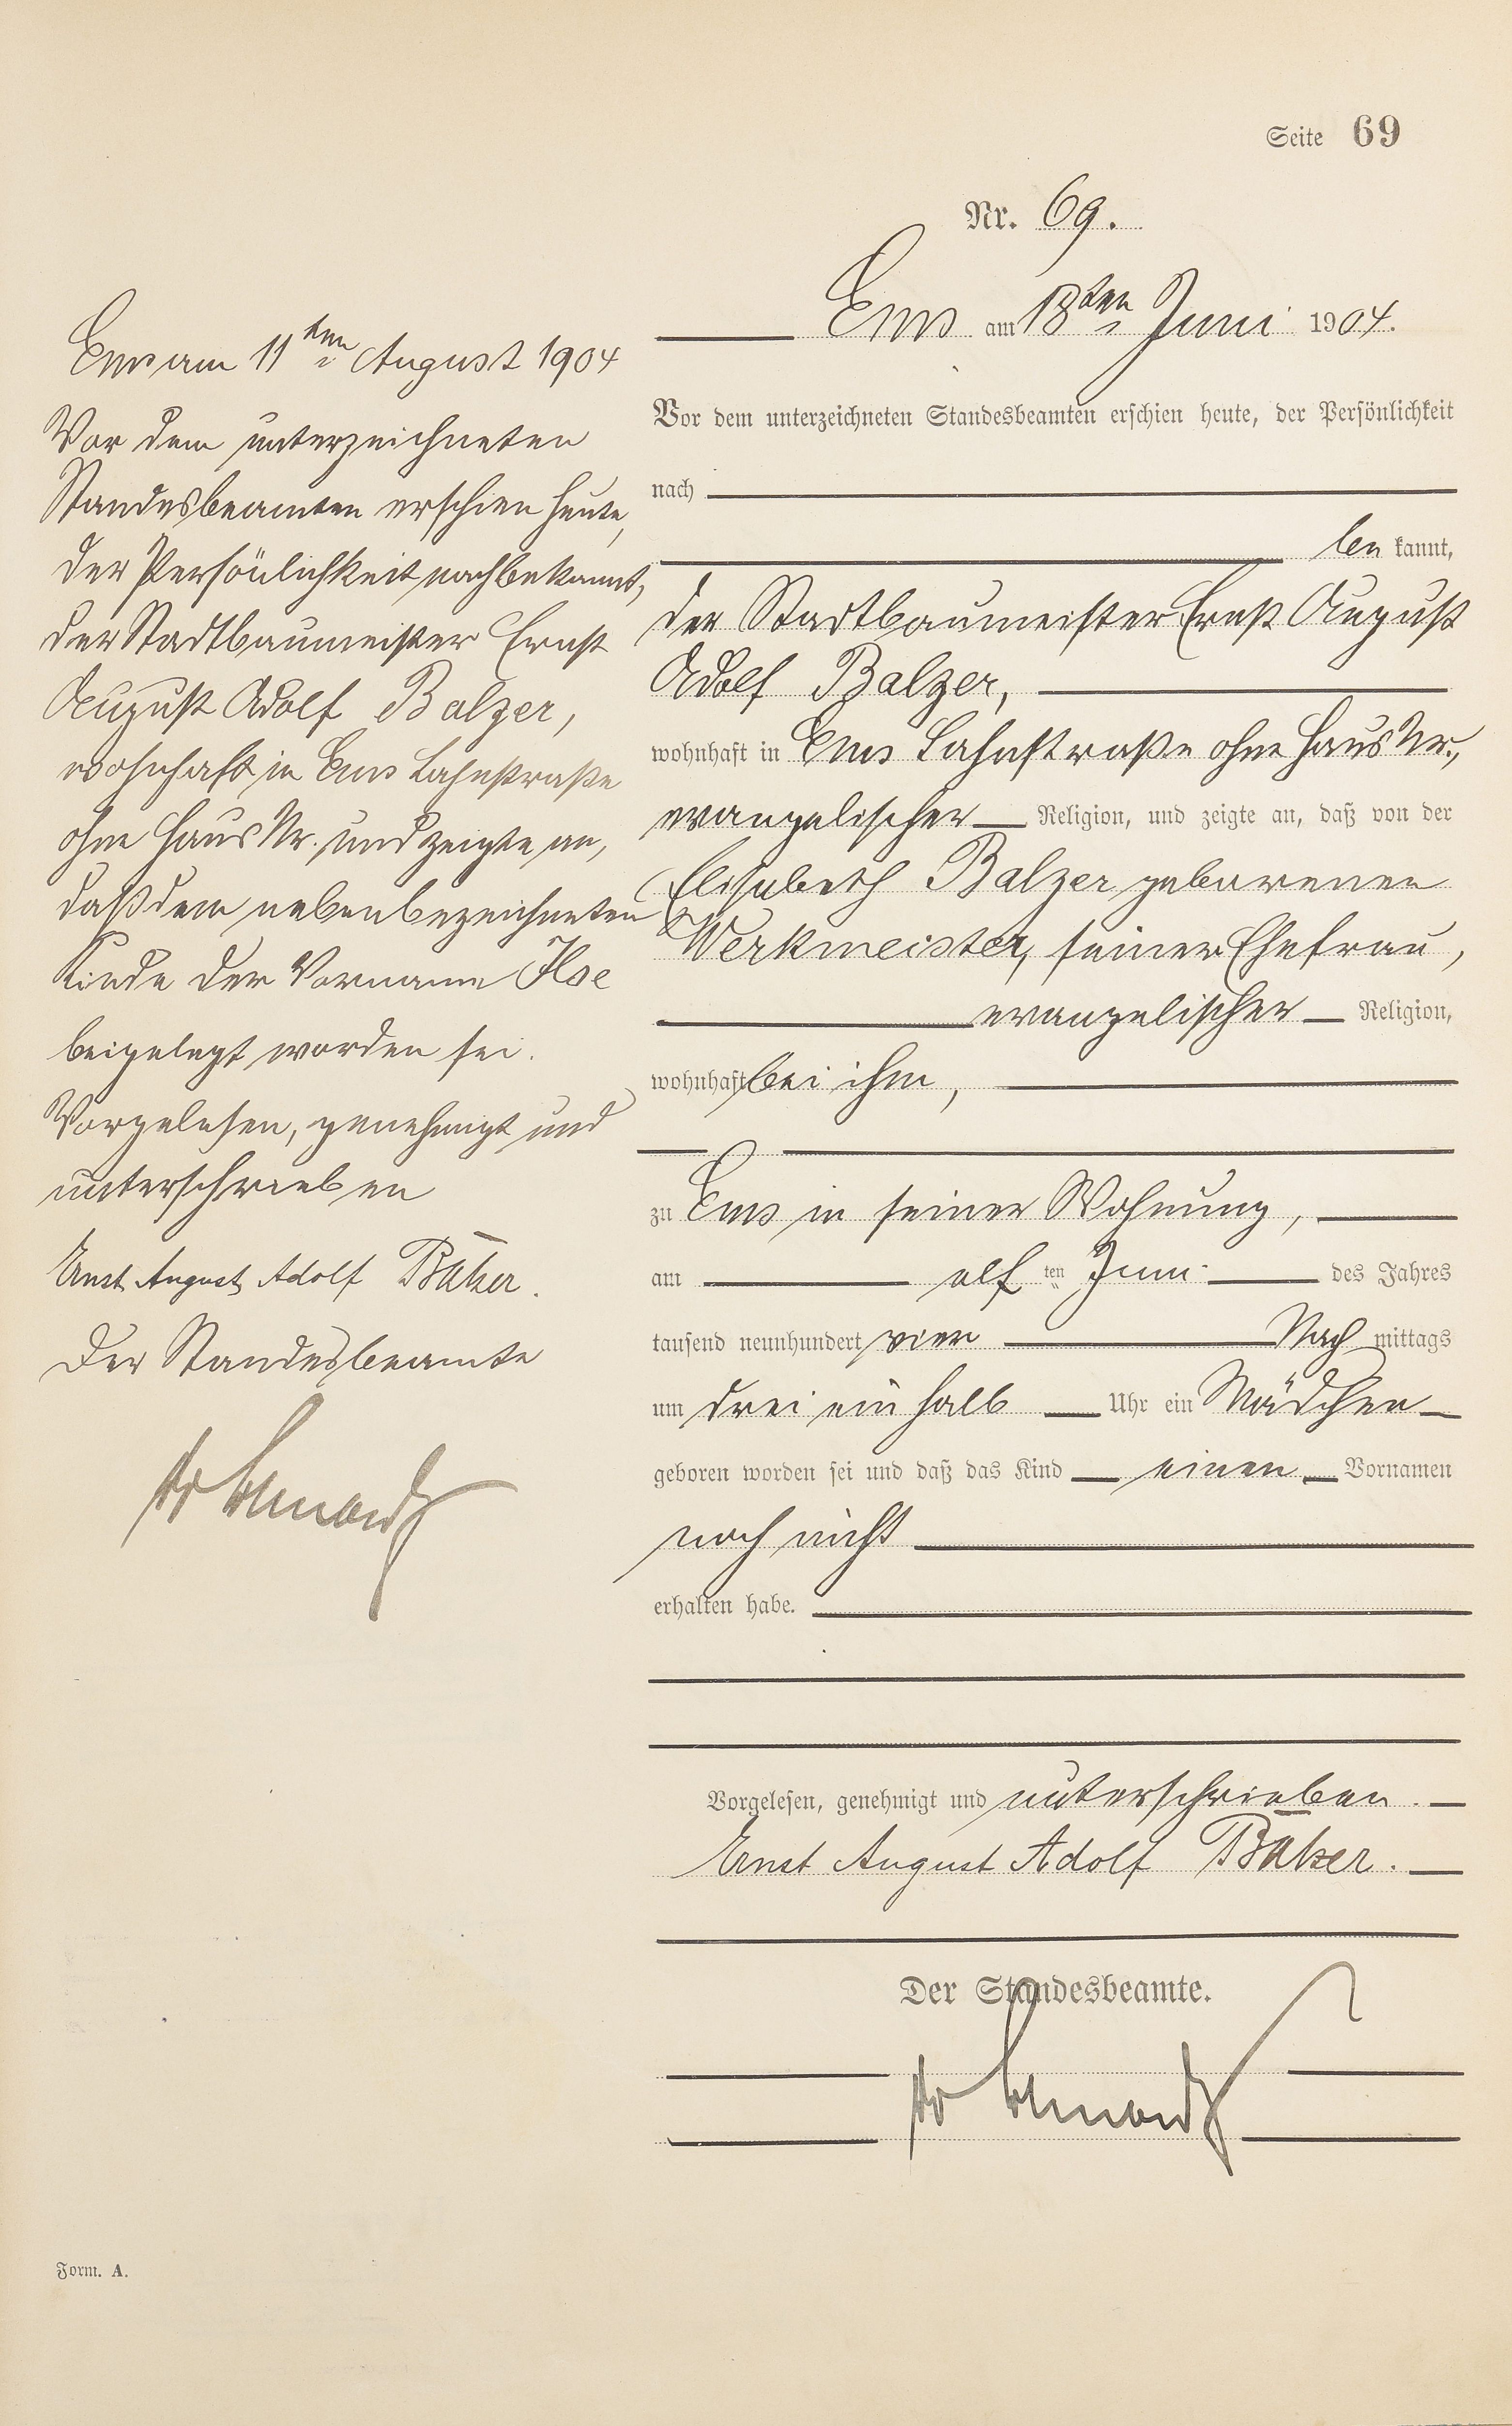 Seite 69
Nr. 69.
Ems am 13ten Juni 1904.
Vor dem unterzeichneten Standesbeamten erschien heute, der Persönlichkeit
nach
bekannt,
der Stadtbaumeister Ernst August
Adolf Balzer,
wohnhaft in Ems Lahnstraße ohne Haus Nr.,
evangelischer Religion, und zeigte an, daß von der
Elisabeth Balzer geborenen
Werkmeister, seiner Ehefrau,
evangelischer Religion,
wohnhaft bei ihm,
zu Ems in seiner Wohnung,
am elften Juni des Jahres
tausend neunhundert vier Nachmittags
um drei ein halb Uhr ein Mädchen
geboren worden sei und daß das Kind einen Vornamen
noch nicht
erhalten habe.
Vorgelesen, genehmigt und unterschrieben.
Ernst August Adolf Balzer.
Der Standesbeamte.
Ems am 11ten August 1904
Vor dem unterzeichneten
Standesbeamten erschien heute,
der Persönlichkeit nach bekannt,
der Stadtbaumeister Ernst
August Adolf Balzer,
wohnhaft in Ems Lahnstraße
ohne Haus Nr. und zeigte an,
daß dem nebenbezeichneten
Kinde der Vorname Ilse
beigelegt worden sei.
Vorgelesen, genehmigt und
unterschrieben
Ernst August Adolf Balzer.
Der Standesbeamte
Form. A.